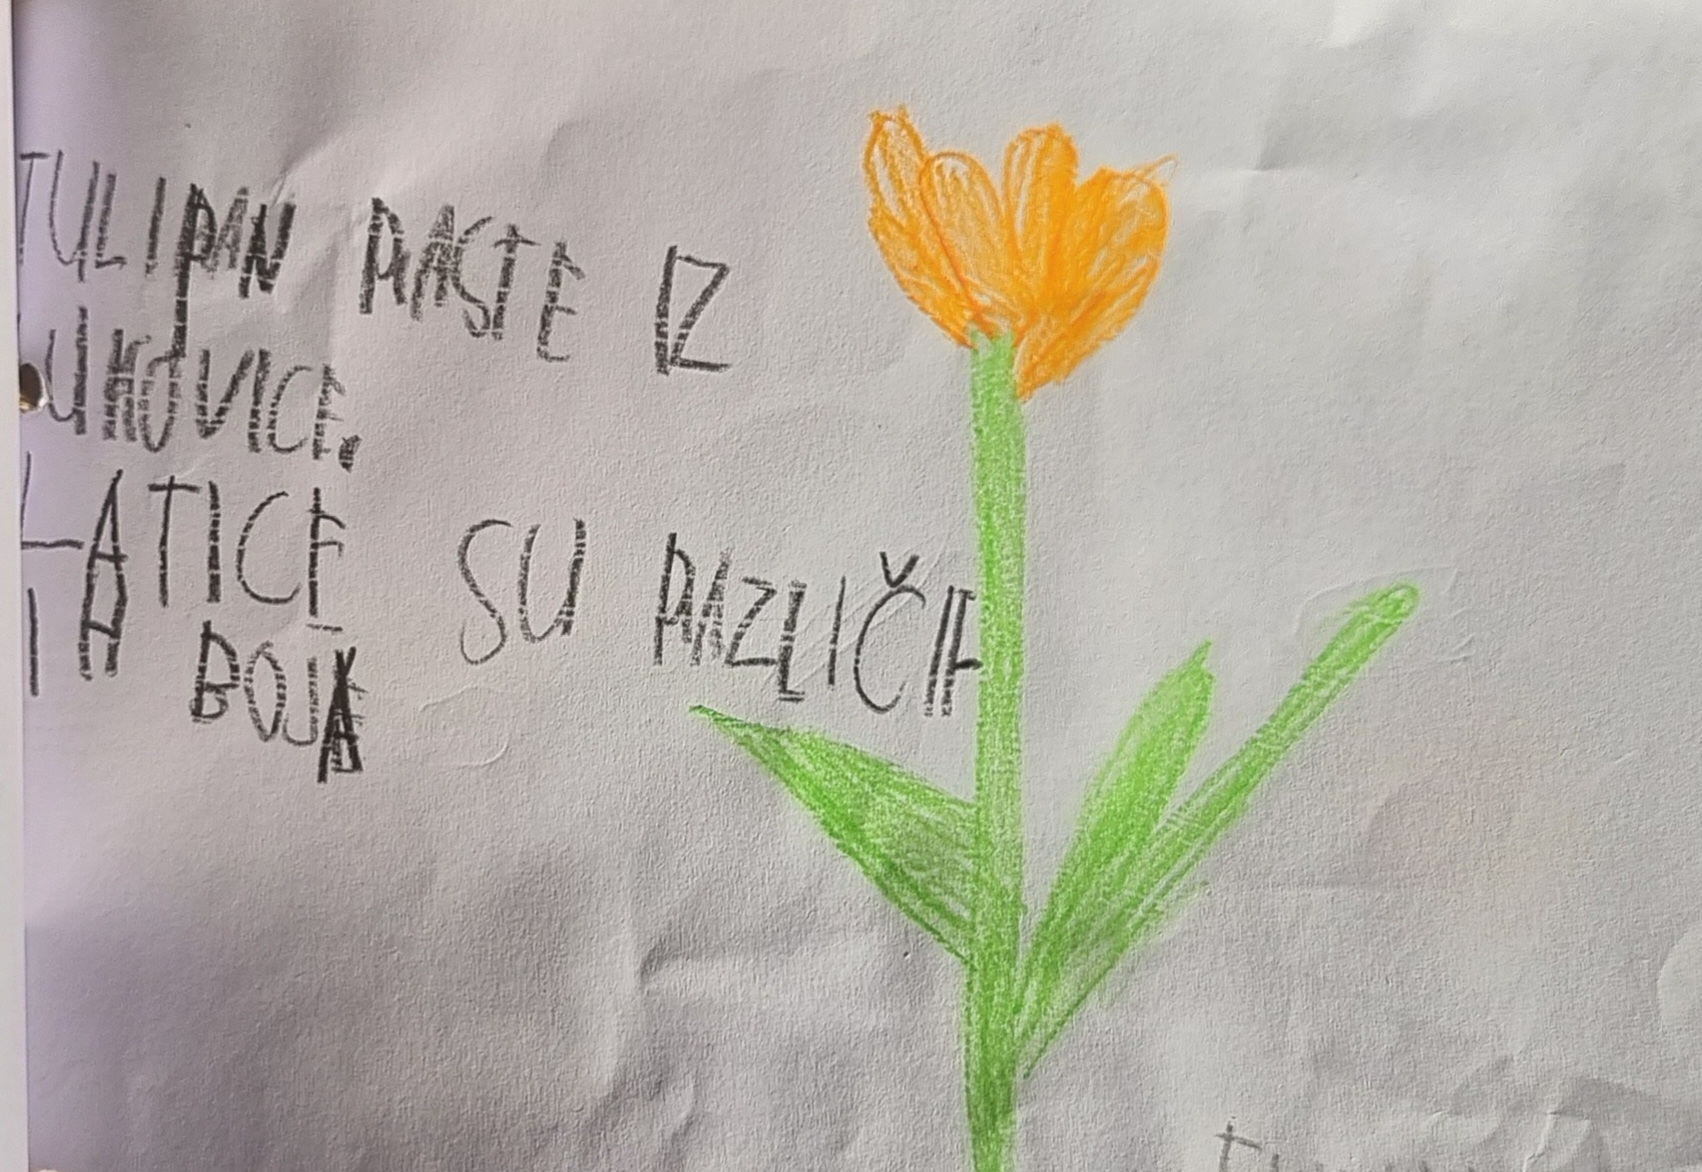 TULIPAN RASTE IZ
LUKOVICE.
LATICE SU RAZLIČI
TA BOJA